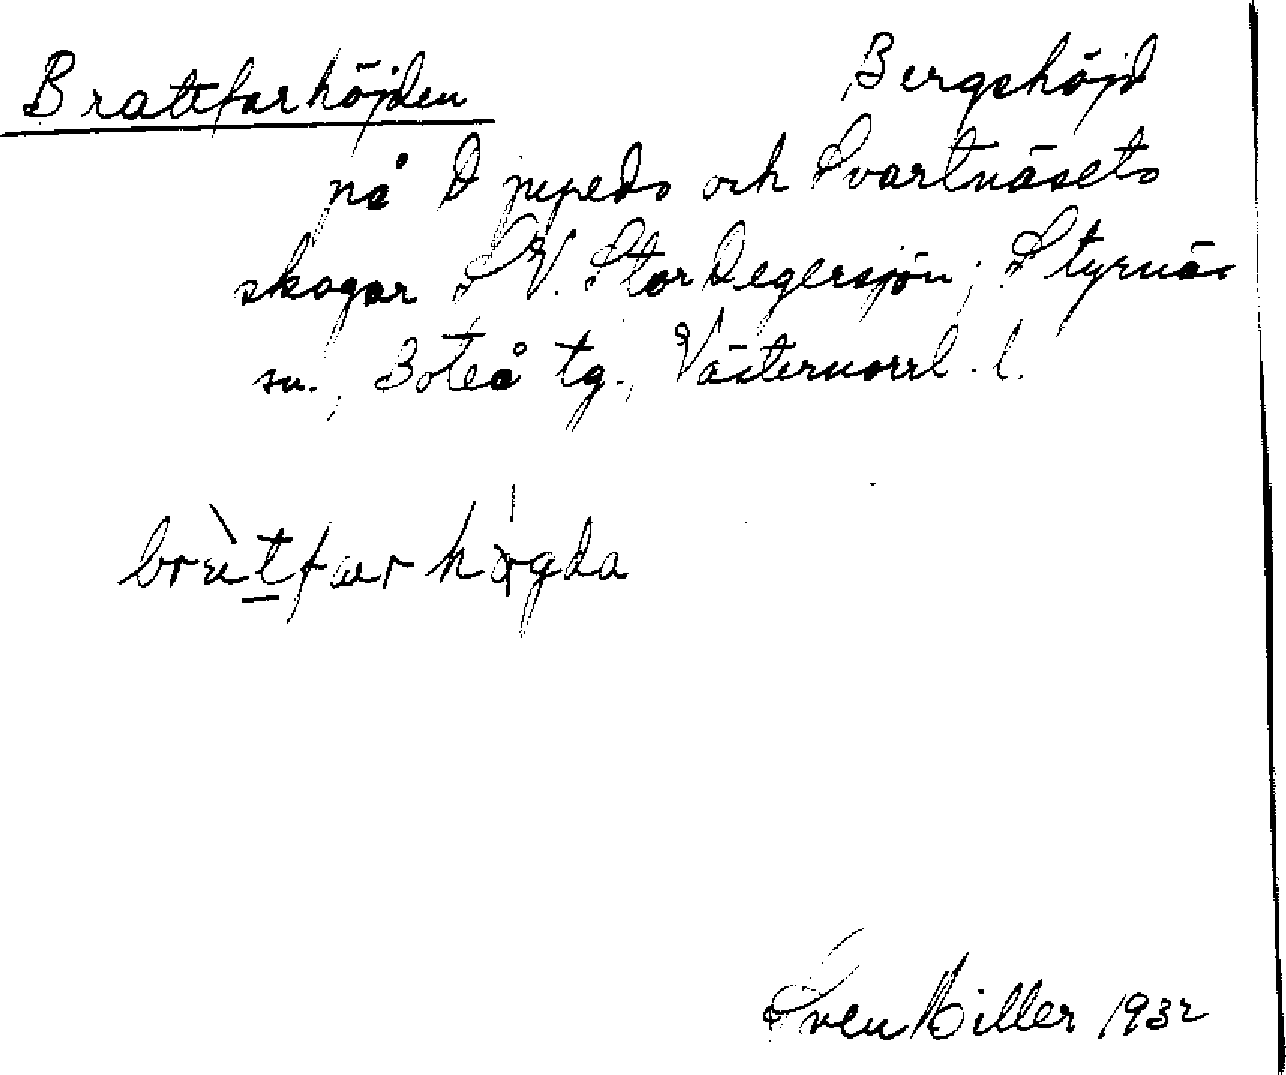 Brattfarhöjden Bergshöjd
på Djupeds och Svartnäsets
skogar SV. Stor Degersjön; Styrnäs
sn., Boteå tg., Västernorrl. l.
Sven Hiller 1932